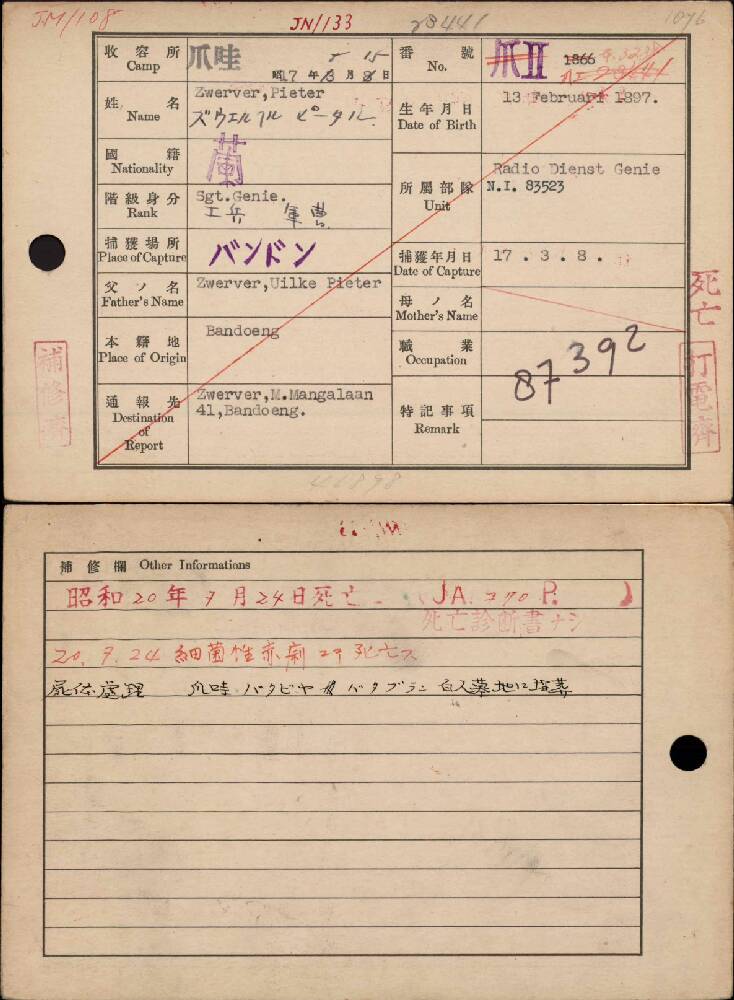 JM/108
JN/133
23441
1076
收容所 Camp
爪哇
昭17年8月15日
番號 No.
爪II
1866
姓名 Name
Zwerver,Pieter
ズウエルフル ピーター
生年月日 Date of Birth
13 Februari 1897.
國籍 Nationality
蘭
階級身分 Rank
Sgt.Genie.
工兵 軍曹
所屬部隊 Unit
Radio Dienst Genie
N.I. 83523
捕獲場所 Place of Capture
バンドン
捕獲年月日 Date of Capture
17.3.8.
父ノ名 Father's Name
Zwerver,Uilke Pieter
母ノ名 Mother's Name
本籍地 Place of Origin
Bandoeng
職業 Occupation
87392
通報先 Destination of Report
Zwerver,M.Mangalaan
41,Bandoeng.
特記事項 Remark
死亡
打電齊
補修齊
46898
補修欄 Other Informations
昭和20年9月24日死亡 (JA. 270 P. )
死亡診断書ナシ
20.9.24 細菌性赤痢ニテ死亡ス
屍体處理 爪哇バタビヤ
白人墓地に埋葬